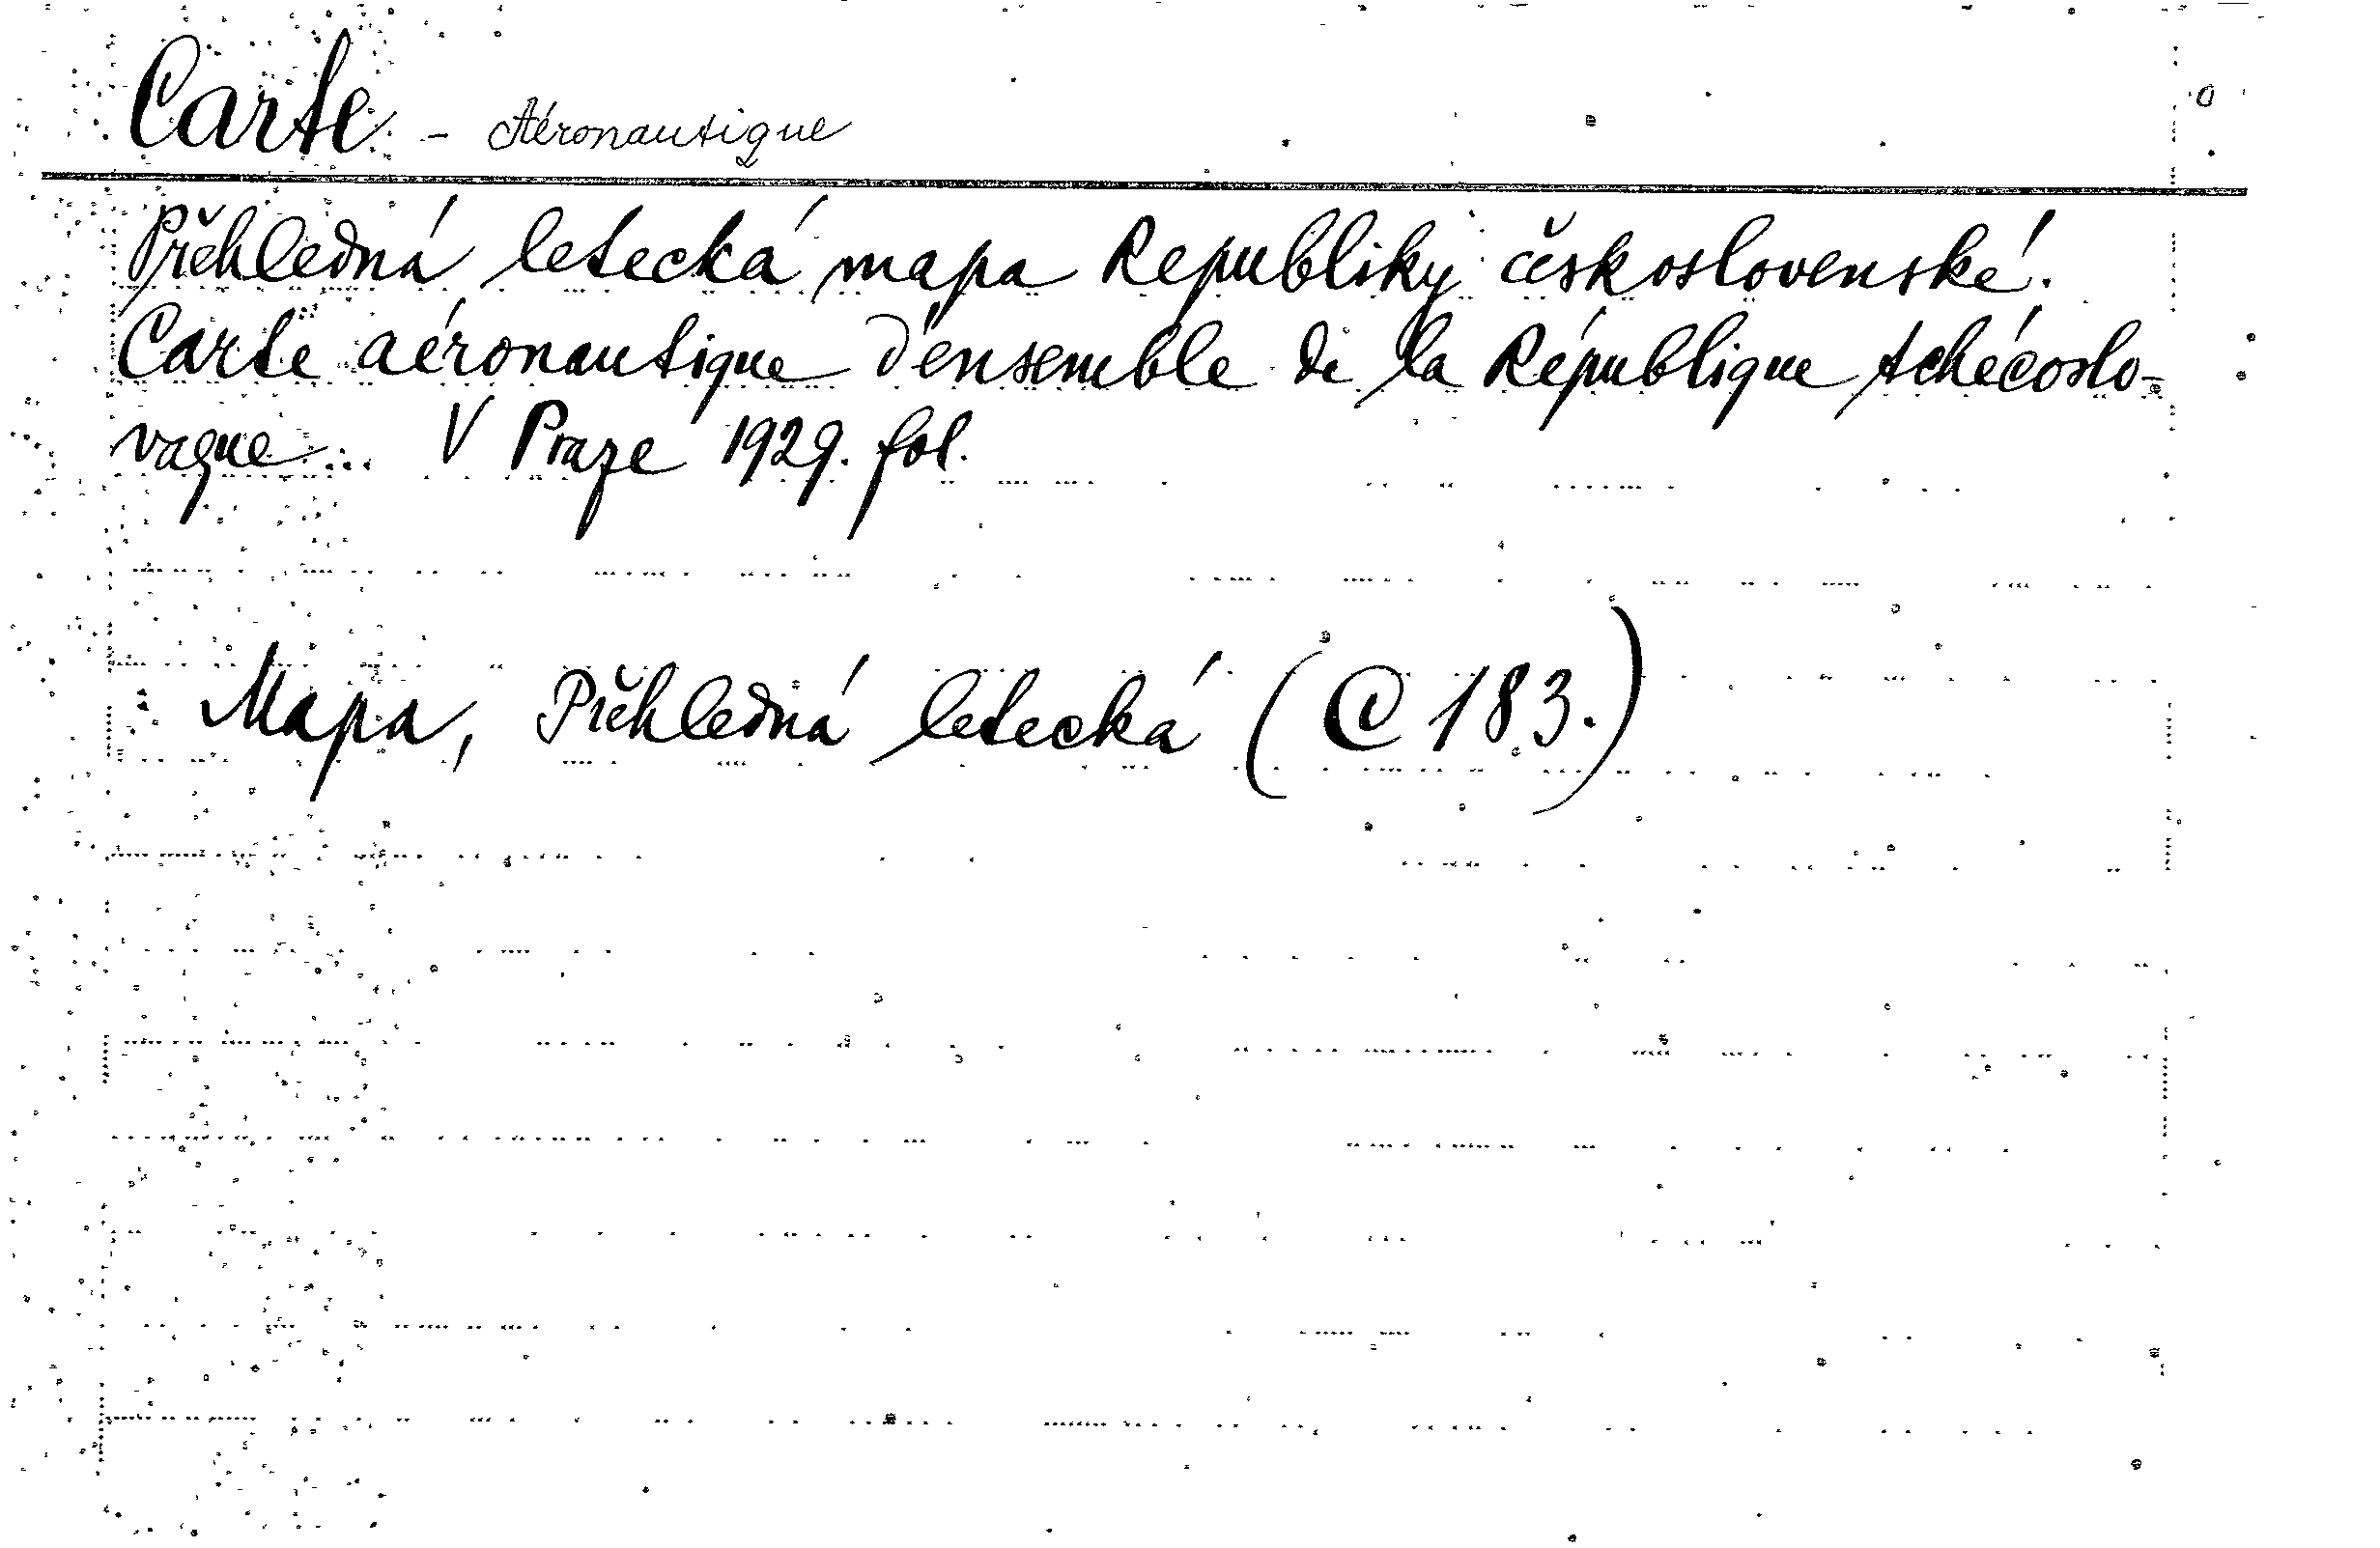 Carte - Aéronautique
Přehledná letecká mapa Republiky československé.
Carte aéronautique d'ensemble de la République tchécoslo-
vaque... V Praze 1929. fol.
Mapa, Přehledná letecká (C 183.)